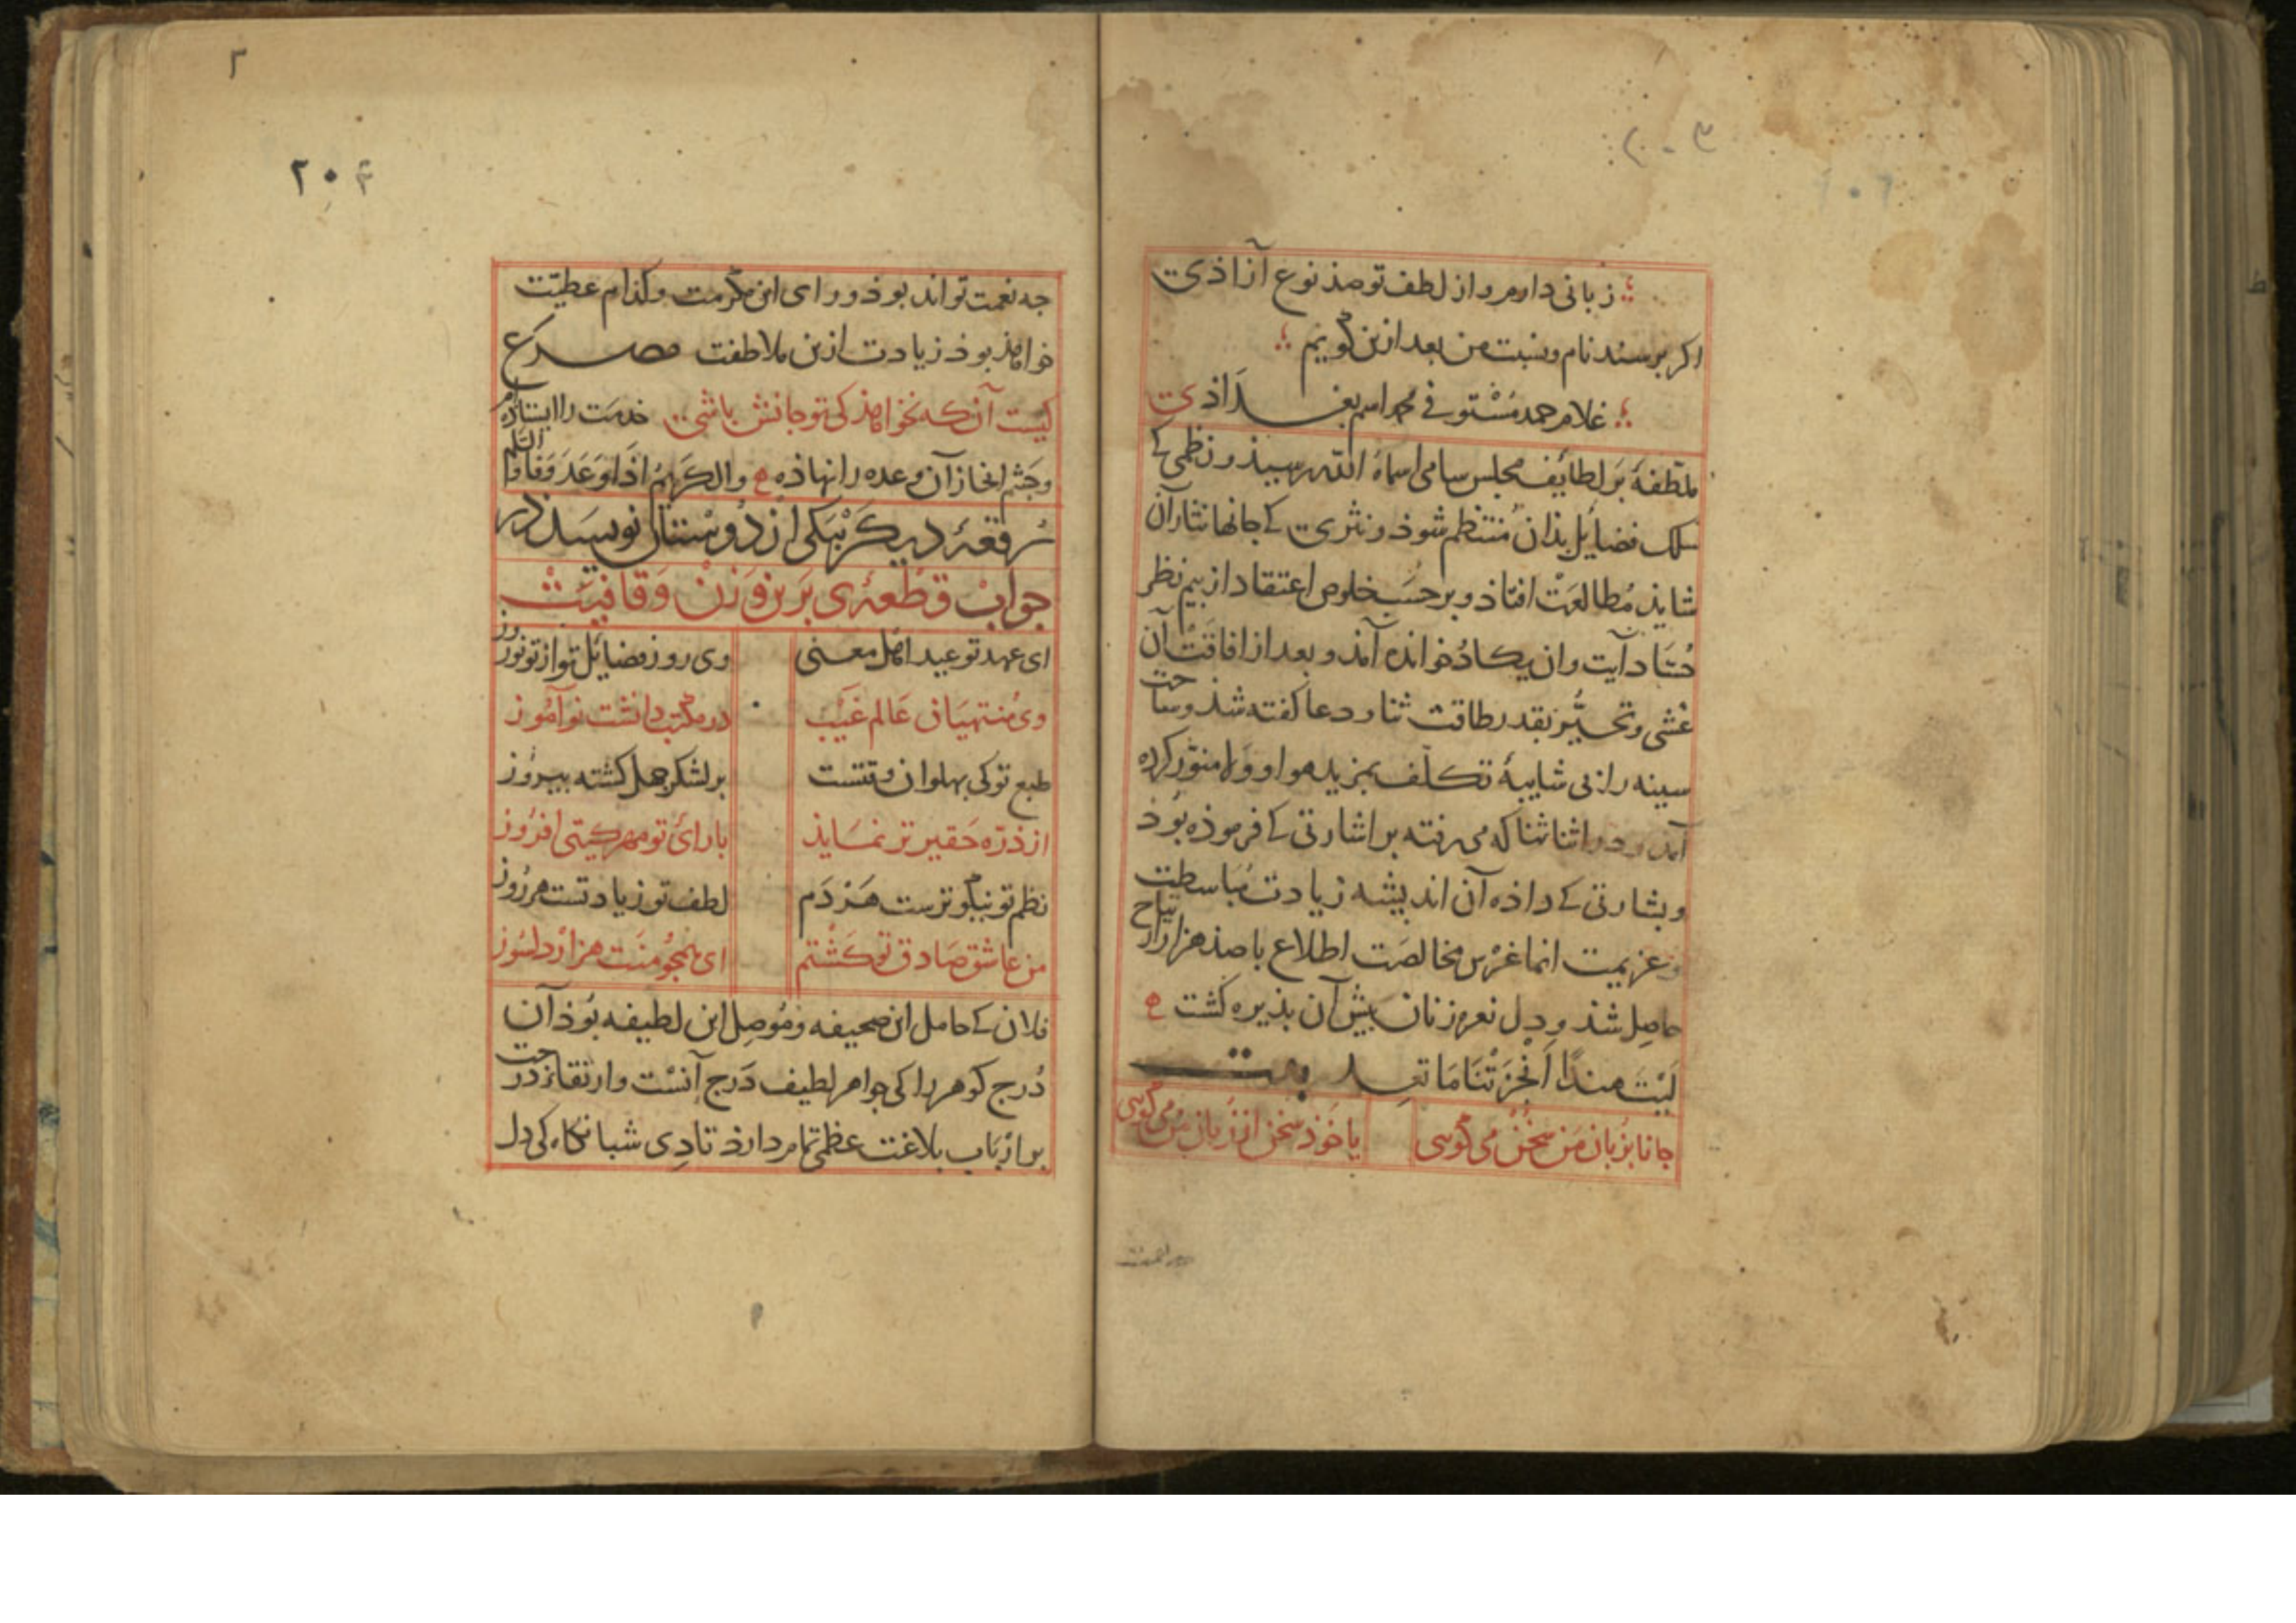 زبانی دارم و از لطف تو صذ نوع آزاذی
اکر برسند نام و نسبت من بعد ازین کویم
غلام حمد مستوفی محمد اسم بغداذی
ملطفهٔ بر لطایف مجلس سامی اسماه الله رسیذ و نظمی که
سلک فضایل بذان منتظم شوذ و نثری که جانها نثار آن
شایذ مطالعت افتاذ و بر حسب خلوص اعتقاد از بیم نظر
حساد آیت وان یکاد خوانده آمذ و بعد از افاقت آن
غشی و تحیر بقدر طاقت ثنا و دعا کفته شذ و ساحت
سینه را بی شایبهٔ تکلف بمزید هوا و ولا منور کرده
آمذ و در اثنا ثنا که می رفته بر اشارتی که فرموذه بوذ
و بشارتی که داذه آن اندیشه زیادت مباسطت
و عزیمت انما غرس مخالصت اطلاع با صذ هزار ارتیاح
حاصل شذ و دل نعره زنان بیش آن بذیره کشت
لیت هندا انجزتنا ما تعد بیت
جانا بزبان من سخن می کویی یا خوذ سخن از زبان من می کویی
۲۰۴
جه نعمت تواند بوذ ورای این مکرمت و کذام عطیت
خواهذ بوذ زیادت ازین ملاطفت مصرع
کیست آن که نخواهذ کی تو جانش باشی خدمت را ایستاذه ام
و جشم انجاز آن وعده را نهاذه والکریم اذا وعد وفا والسلم
رقعهٔ دیکر بیکی از دوستان نویسذ در
جواب قطعهٔ ی بر این وزن و قافیت
ای عهد تو عید اهل معنی وی روز فضایل تو از تو نوروز
وی منتهیان عالم غیب در مکتب دانشت نوآموز
طبع تو کی بهلوان وقتست بر لشکر جهل کشته بیروز
از ذره حقیر تر نمایذ با رای تو مهر کیتی افروز
نظم تو نیکو ترست هر دم لطف تو زیادتست هر روز
من عاشق صادق تو کشتم ای همجو منت هزار دلسوز
فلان که حامل این صحیفه و موصل این لطیفه بوذ آن
درج کوهر را کی جواهر لطیف درج آنست و ارتقا در
بر ارباب بلاغت عظمی تمام دارذ تا دی شبانکاه کی دل